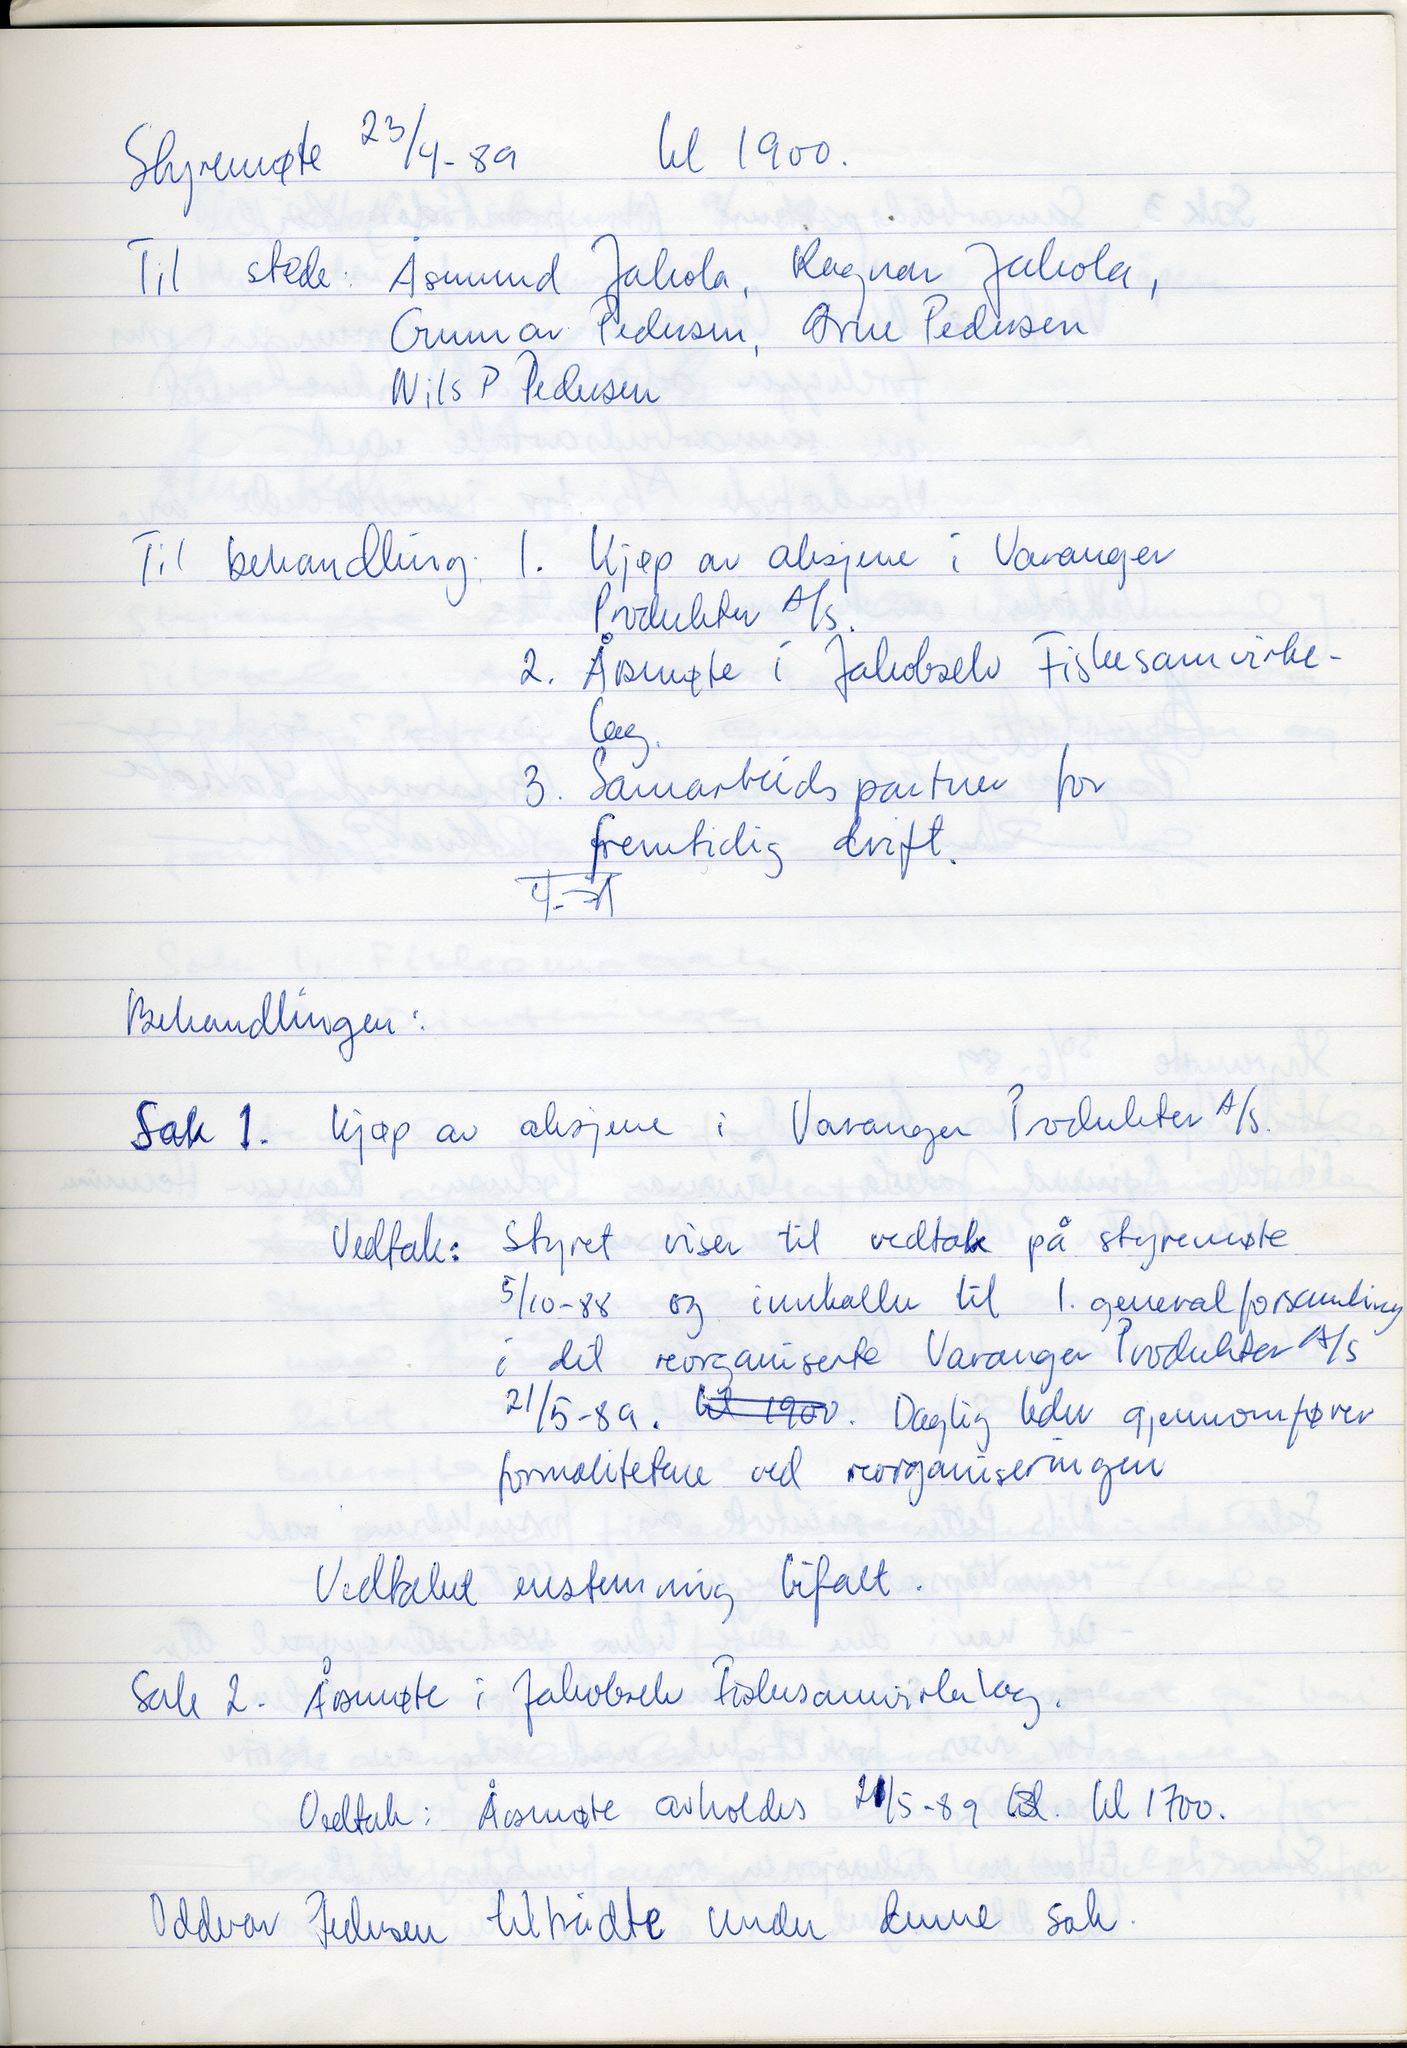 Styremøte 23/4-89 kl 1900.
Til stede: Åsmund Jakola, Ragnar Jakola,
Gunnar Pedersen, Arne Pedersen
Nils P Pedersen
Til behandling: 1. Kjøp av aksjene i Varanger
Produkter A/S.
2. Årsmøte i Jakobselv Fiskesamvirke-
lag.
3. Samarbeids partner for
fremtidig drift.
Behandlingen:
Sak 1. Kjøp av aksjene i Varanger Produkter A/S.
Vedtak: Styret viser til vedtak på styremøte
5/10-88 og innkaller til 1. generalforsamling
i det reorganiserte Varanger Produkter A/S
21/5-89. kl 1900. Daglig leder gjennomfører
formalitetene ved reorganiseringen
Vedtaket enstemmig bifalt.
Sak 2. Årsmøte i Jakobselv Fiskesamvirkelag.
Vedtak: Årsmøte avholdes 21/5-89 kl 1700.
Oddvar Pedersen tiltrådte under denne sak.